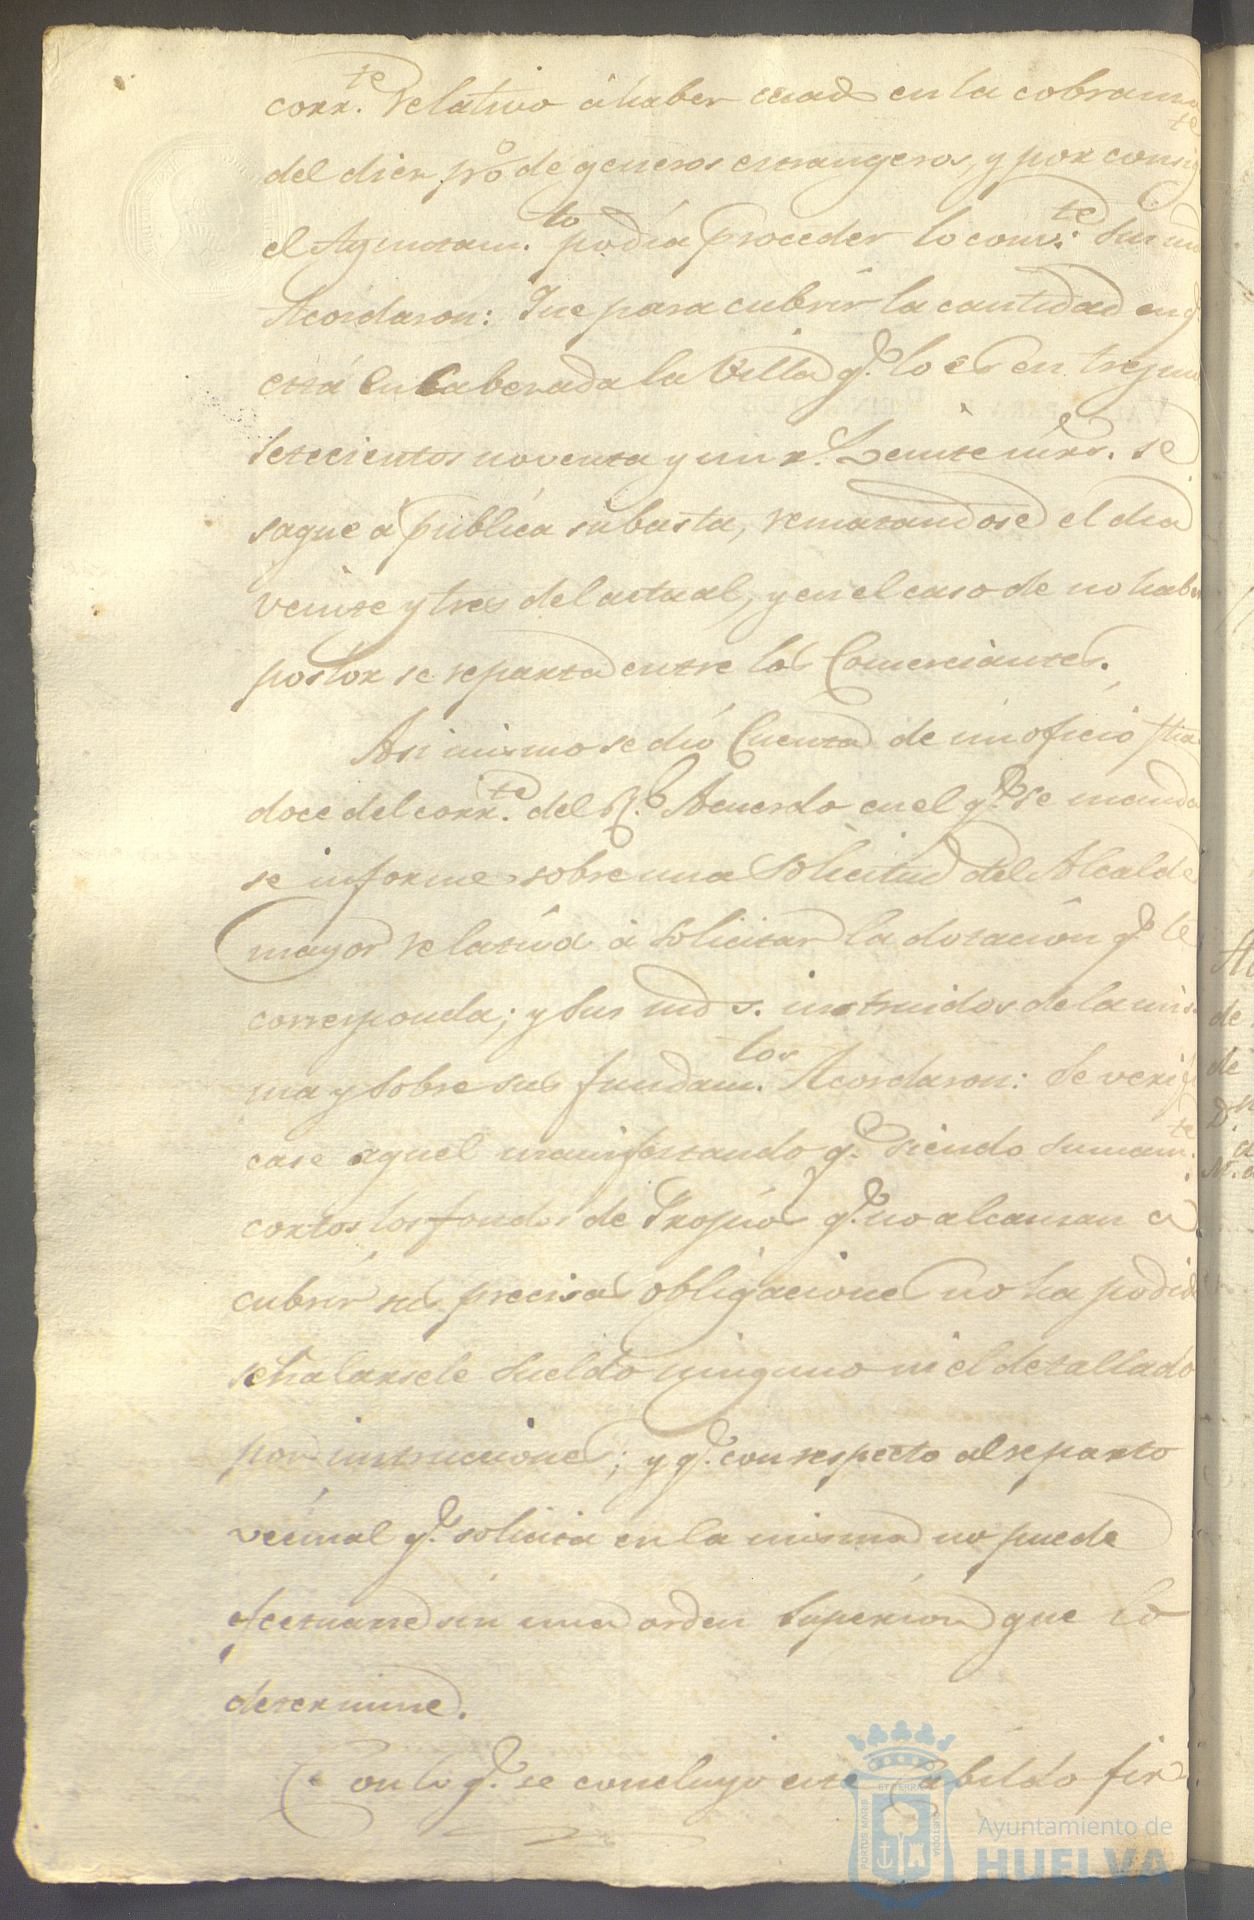 corr.te relativo á haber cesado en la cobranza
del diez p%o de generos estrangeros, y por consig.te
el Ayuntam.to podia proceder lo conv.te Sus md
Acordaron: Que para cubrir la cantidad en q.
está encabezada la Villa q.e lo es en tres mil
setecientos noventa y un r.s veinte mrs. se
saque á pública subasta, rematandose el dia
veinte y tres del actual, y en el caso de no haber
postor se reparta entre los Comerciantes.
Asi mismo se dió Cuenta de un oficio fha
doce del corr.te del R.l Acuerdo en el q.e se manda
se informe sobre una solicitud del Alcalde
mayor relativa á solicitar la dotacion q.e le
corresponda; y Sus mds. instruidos de la mis
ma y sobre sus fundam.tos Acordaron: Se verifi
case aquel manifestando q.e siendo sumam.te
cortos los fondos de Propios q.e no alcanzan á
cubrir sus precisas obligaciones no ha podido
señalarsele sueldo ninguno ni el detallado
por instrucciones; y q.e con respecto al reparto
vecinal q.e solicita en la misma no puede
efectuarse sin una orden Superior que lo
determine.
Con lo q.e se concluyó este Cabildo fir
Ayuntamiento de
HUELVA